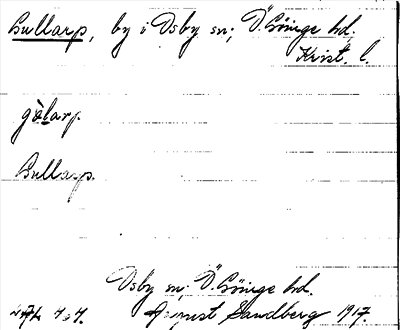 Gullarp, by i Osby sn; Ö. Göinge hd.
Krist. l.
gòlarp
Gullarp.
Osby sn; Ö. Göinge hd.
August Sandberg 1917.